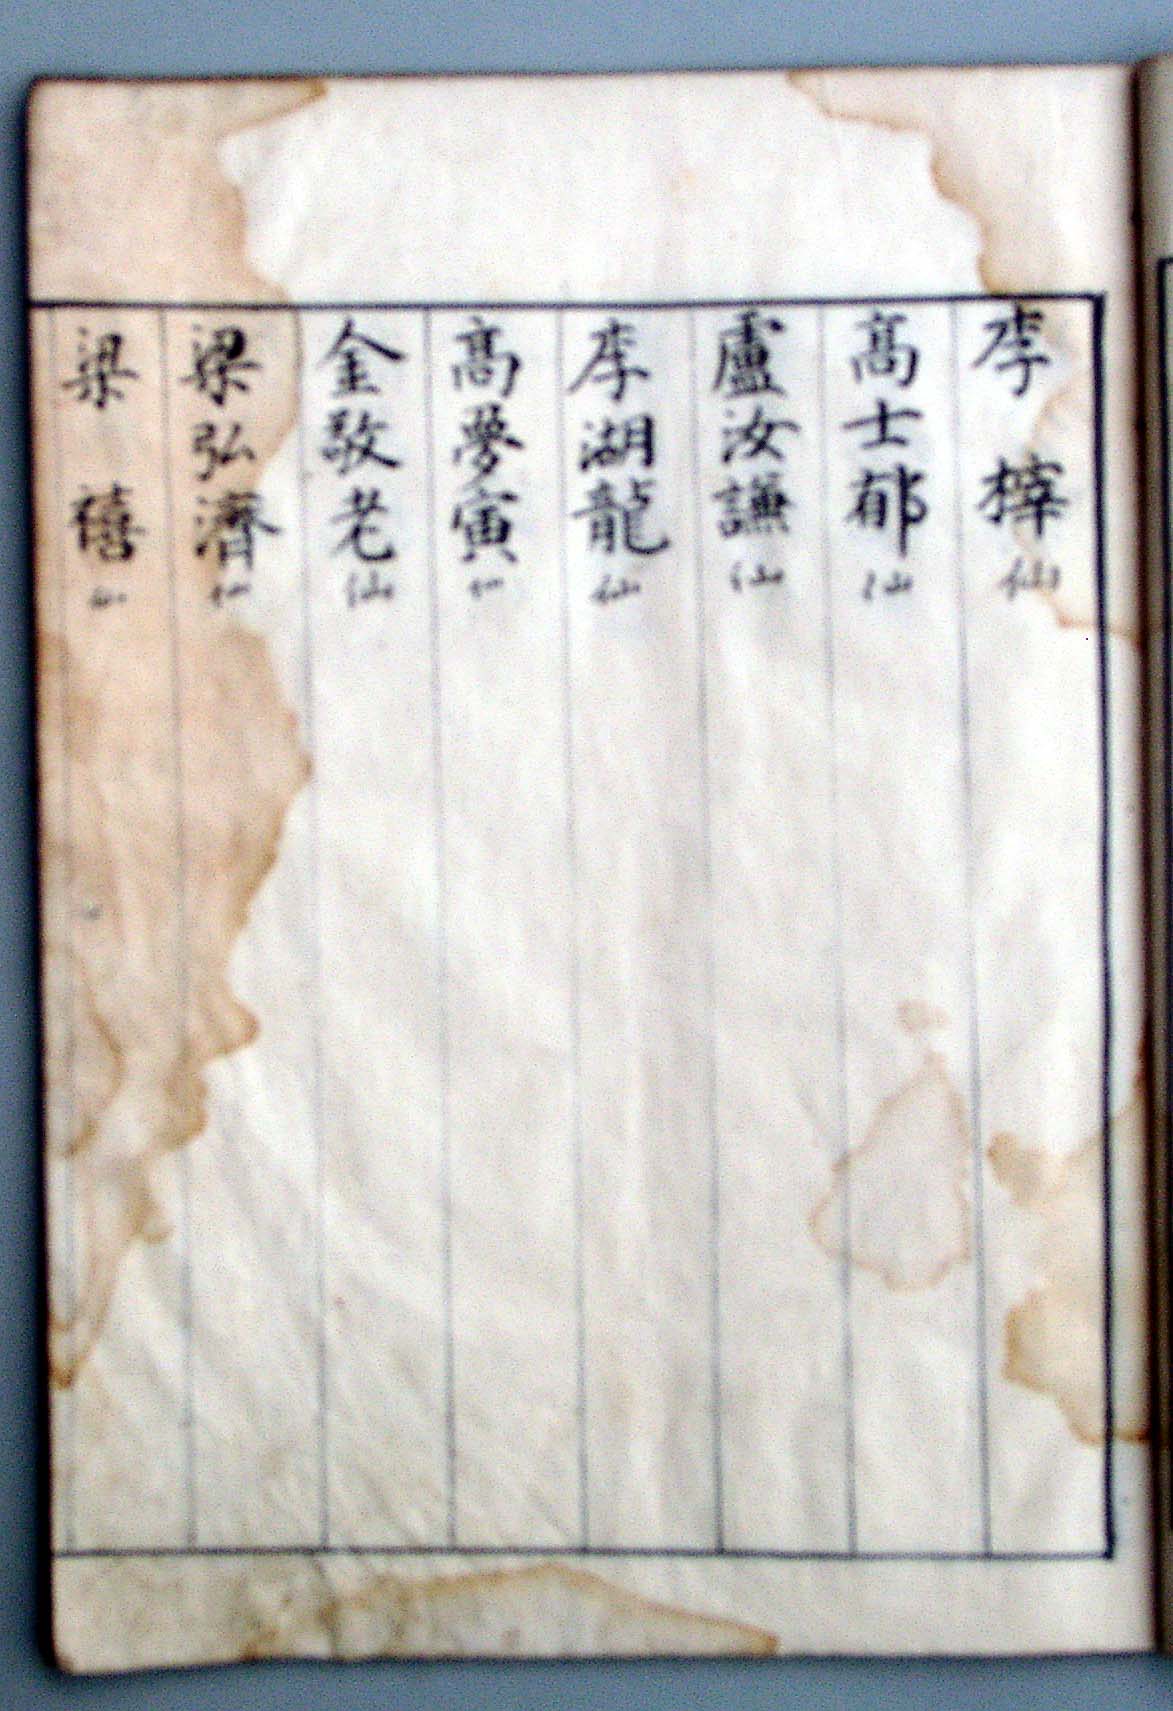 李 梓 仙
高士郁 仙
盧汝謙 仙
李湖龍 仙
高夢寅 仙
金敬老 仙
梁弘濟 仙
梁 禧 仙